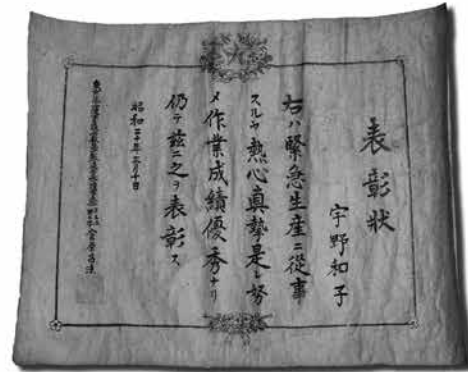 表彰状
宇野和子
右ハ緊急生産ニ從事
スルヤ熱心真摯是レ努
メ作業成績優秀ナリ
仍テ茲ニ之ヲ表彰ス
昭和二十年三月十日